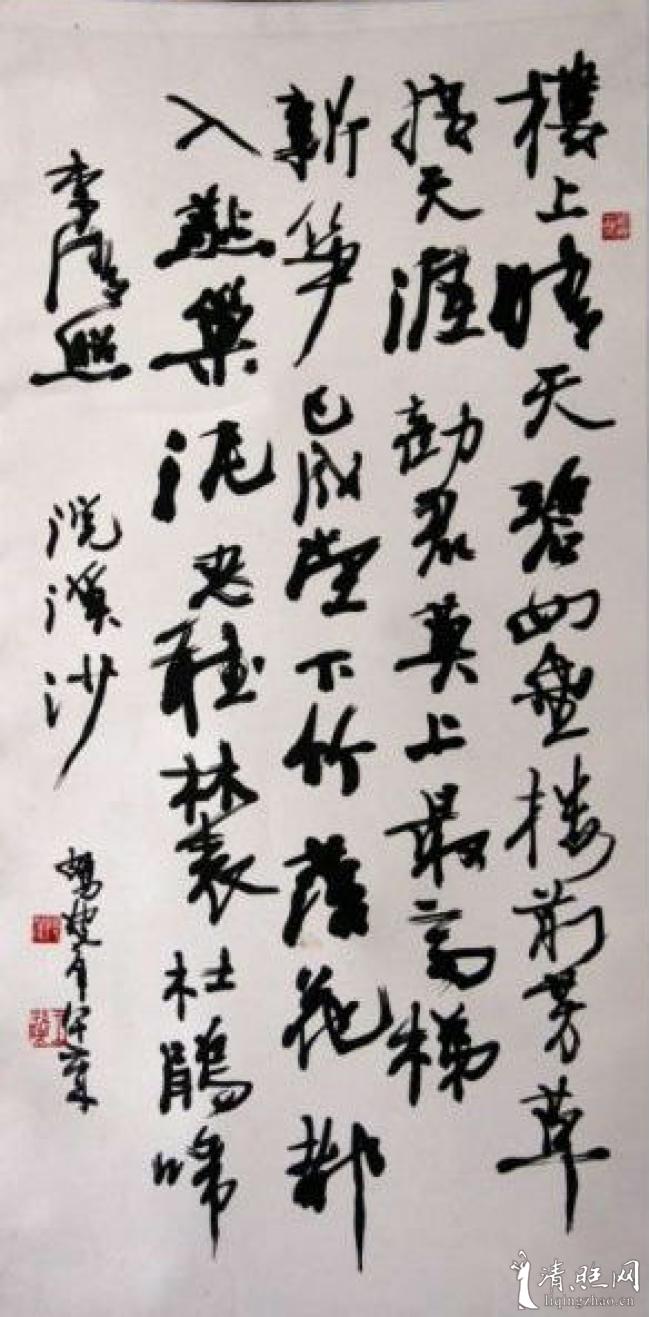 樓上晴天碧四垂楼前芳草
接天涯劝君莫上最高梯
新笋已成堂下竹落花都
入燕巢泥忍聽林表杜鵑啼
李清照 浣溪沙
清旺网
liqingzhao.cn